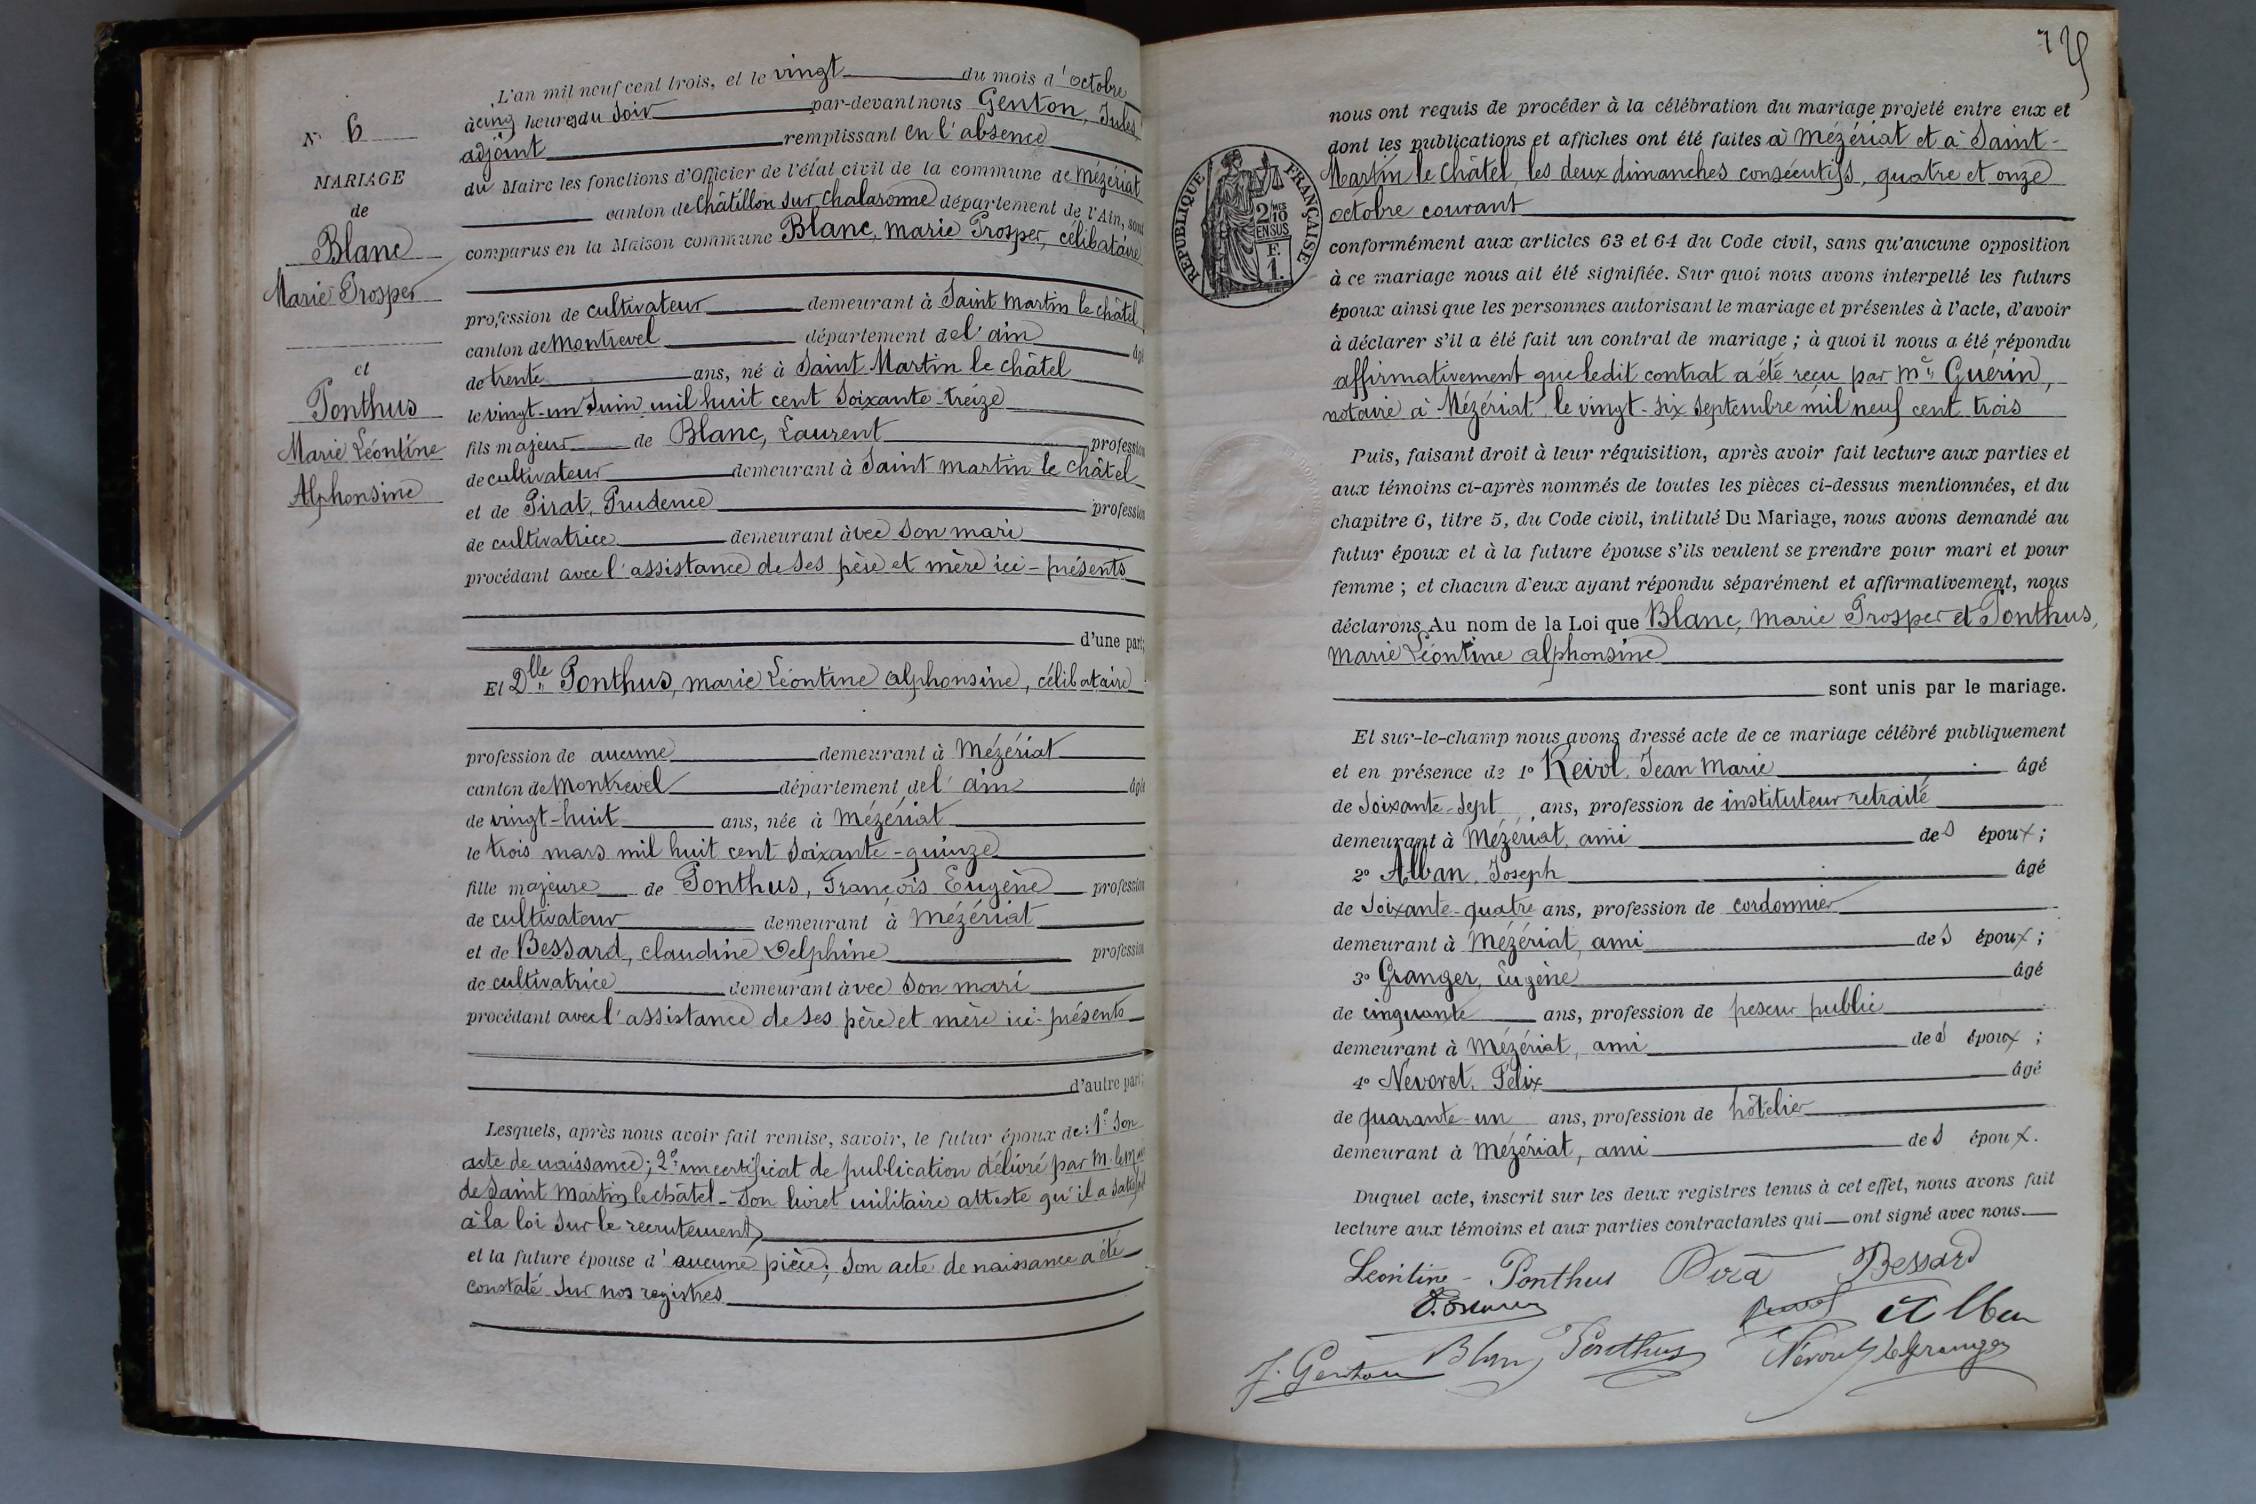 N° 6
MARIAGE
de
Blanc
Marie Prosper
et
Ponthus
Marie Léontine
Alphonsine
L'an mil neuf cent trois, et le vingt du mois d'octobre
à cinq heures du soir par-devant nous Genton, Jules
adjoint remplissant en l'absence
du Maire les fonctions d'Officier de l'état civil de la commune de Mézériat
canton de Châtillon sur Chalaronne département de l'Ain, sont
comparus en la Maison commune Blanc, marie Prosper, célibataire
profession de cultivateur demeurant à Saint Martin le châtel
canton de Montrevel département de l'ain âgé
de trente ans, né à Saint Martin le châtel
le vingt-un Juin mil huit cent soixante-treize
fils majeur de Blanc, Laurent profession
de cultivateur demeurant à Saint martin le châtel
et de Pirat, Prudence profession
de cultivatrice demeurant avec son mari
procédant avec l'assistance de ses père et mère ici-présents
d'une part;
Et Dlle Ponthus, marie Léontine alphonsine, célibataire
profession de aucune demeurant à Mézériat
canton de Montrevel département de l'ain âgée
de vingt-huit ans, née à Mézériat
le trois mars mil huit cent soixante-quinze
fille majeure de Ponthus, François Eugène profession
de cultivateur demeurant à Mézériat
et de Bessard, claudine Delphine profession
de cultivatrice demeurant avec son mari
procédant avec l'assistance de ses père et mère ici-présents
d'autre part;
Lesquels, après nous avoir fait remise, savoir, le futur époux de: 1° Son
acte de naissance; 2° un certificat de publication délivré par M. le Maire
de Saint Martin le châtel - Son livret militaire atteste qu'il a satisfait
à la loi sur le recrutement
et la future épouse d'aucune pièce; Son acte de naissance a été
constaté sur nos registres
RÉPUBLIQUE FRANÇAISE
2/10 MES
EN SUS
F.
1.
nous ont requis de procéder à la célébration du mariage projeté entre eux et
dont les publications et affiches ont été faites à Mézériat et à Saint-
Martin le Châtel, les deux dimanches consécutifs, quatre et onze
octobre courant
conformément aux articles 63 et 64 du Code civil, sans qu'aucune opposition
à ce mariage nous ait été signifiée. Sur quoi nous avons interpellé les futurs
époux ainsi que les personnes autorisant le mariage et présentes à l'acte, d'avoir
à déclarer s'il a été fait un contrat de mariage; à quoi il nous a été répondu
affirmativement que ledit contrat a été reçu par me Guérin,
notaire à Mézériat le vingt-six Septembre mil neuf cent trois
Puis, faisant droit à leur réquisition, après avoir fait lecture aux parties et
aux témoins ci-après nommés de toutes les pièces ci-dessus mentionnées, et du
chapitre 6, titre 5, du Code civil, intitulé Du Mariage, nous avons demandé au
futur époux et à la future épouse s'ils veulent se prendre pour mari et pour
femme; et chacun d'eux ayant répondu séparément et affirmativement, nous
déclarons Au nom de la Loi que Blanc, Marie Prosper et Ponthus,
Marie Léontine alphonsine
sont unis par le mariage.
Et sur-le-champ nous avons dressé acte de ce mariage célébré publiquement
et en présence de 1° Jean Marie âgé
de soixante-sept ans, profession de instituteur retraité
demeurant à Mézériat, ami des époux;
2° Alban, Joseph âgé
de soixante-quatre ans, profession de cordonnier
demeurant à Mézériat, ami des époux;
3° Granger, Eugène âgé
de cinquante ans, profession de peseur public
demeurant à Mézériat, ami des époux;
4° Nevoret, Félix âgé
de quarante-un ans, profession de hôtelier
demeurant à Mézériat, ami des époux.
Duquel acte, inscrit sur les deux registres tenus à cet effet, nous avons fait
lecture aux témoins et aux parties contractantes qui ont signé avec nous.
Léontine - Ponthus Bessard
Alban
J. Genton Blanc Ponthus Nevoret Granger